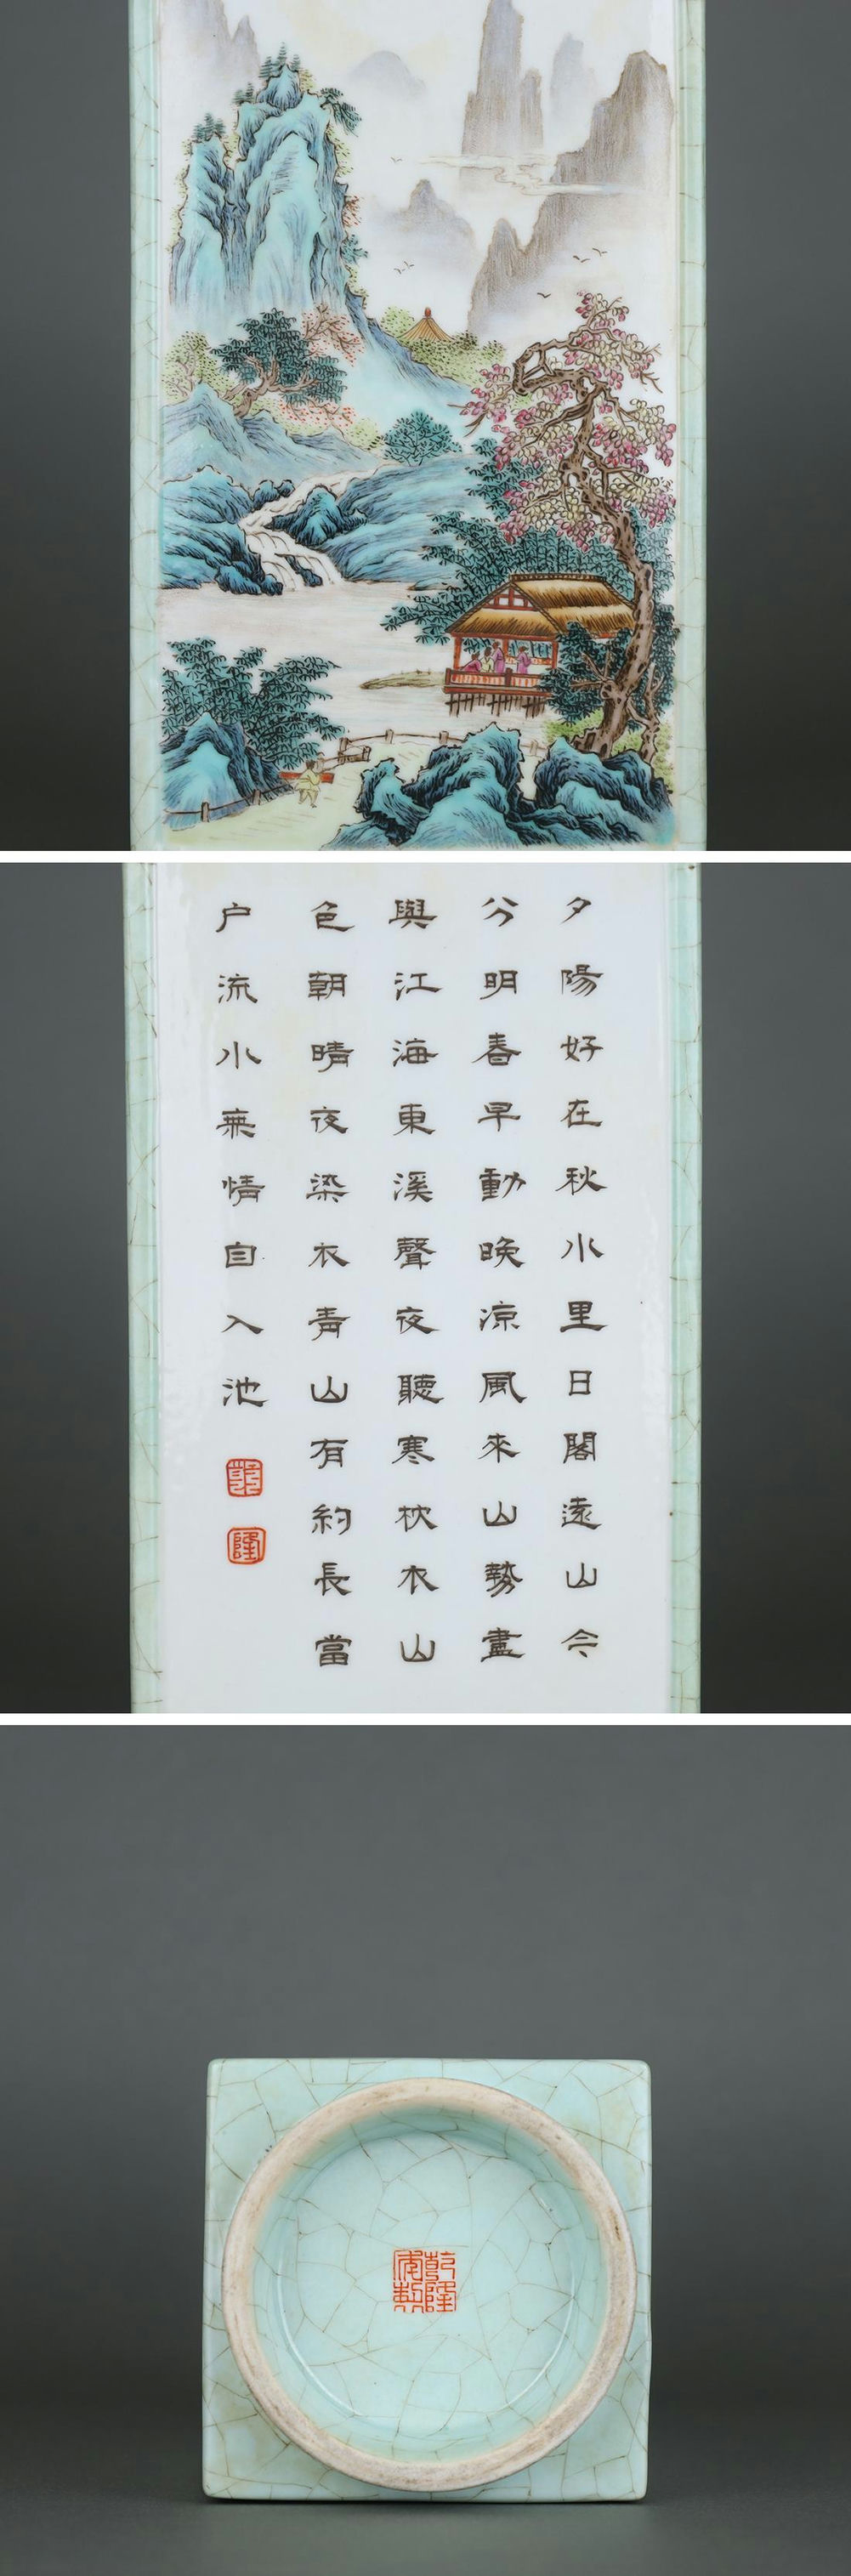 夕陽好在秋水里日閣遠山今
分明春早動晚凉風來山勢盡
與江海東溪聲夜聽寒枕衣山
色朝晴夜染衣青山有約長當
户流小無情自入池
乾隆
乾隆年製